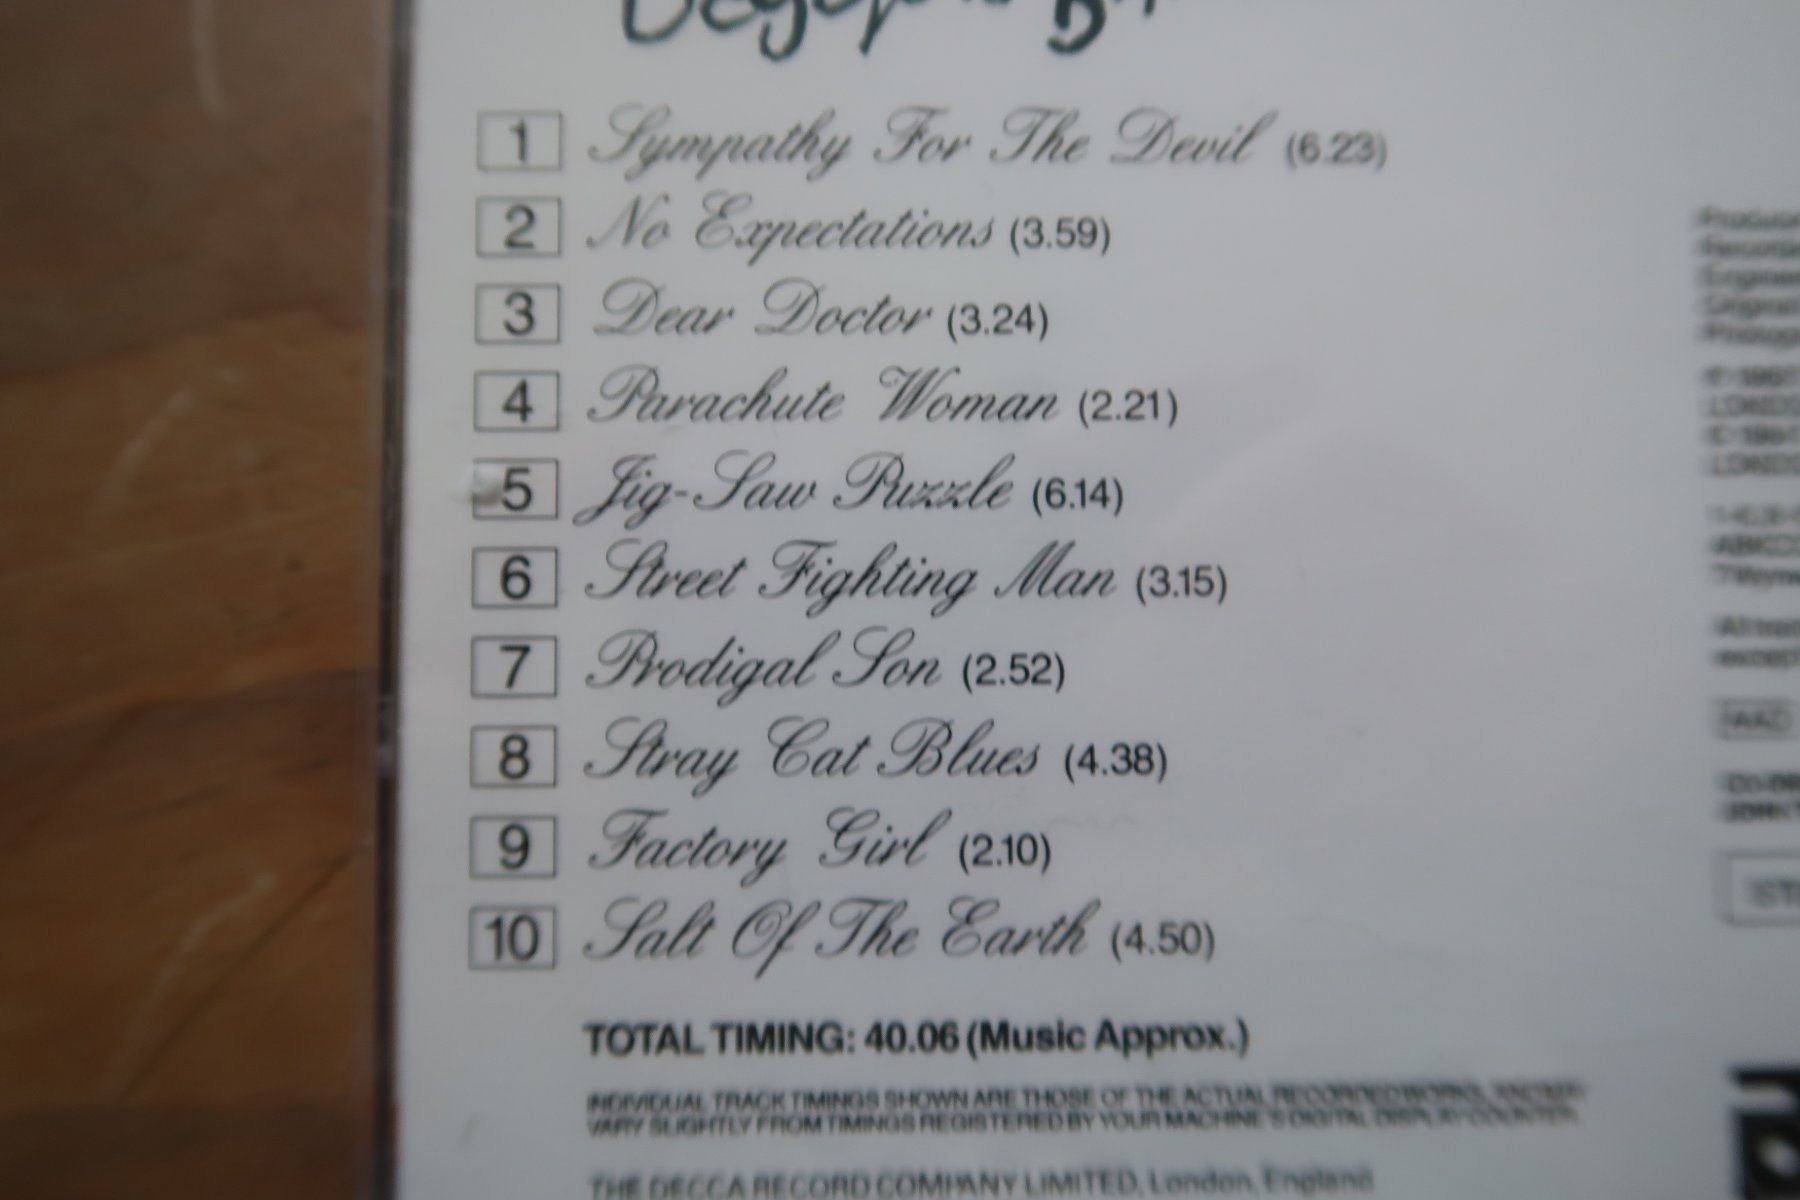 1 Sympathy For The Devil (6.23)
2 No Expectations (3.59)
3 Dear Doctor (3.24)
4 Parachute Woman (2.21)
5 Jig-Saw Puzzle (6.14)
6 Street Fighting Man (3.15)
7 Prodigal Son (2.52)
8 Stray Cat Blues (4.38)
9 Factory Girl (2.10)
10 Salt Of The Earth (4.50)
TOTAL TIMING: 40.06 (Music Approx.)
INDIVIDUAL TRACK TIMINGS SHOWN ARE THOSE OF THE ACTUAL RECORDED WORKS, AND MAY
VARY SLIGHTLY FROM TIMINGS REGISTERED BY YOUR MACHINE'S DIGITAL DISPLAY COUNTER.
THE DECCA RECORD COMPANY LIMITED, London, England